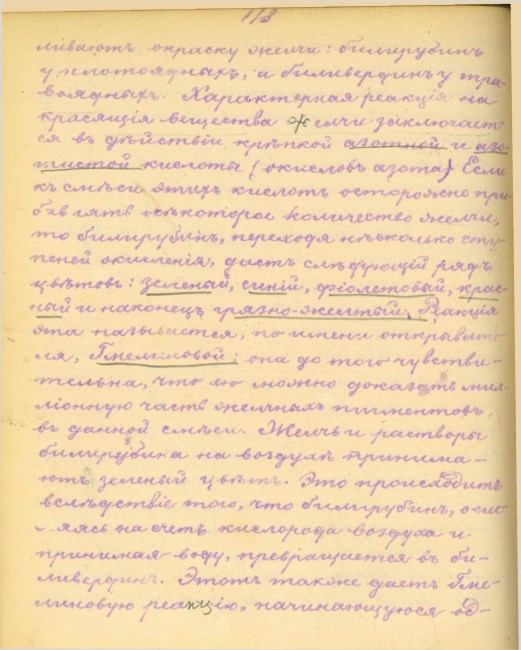 118
ливаютъ окраску желчи: билирубинъ
у плотоядныхъ, а биливердинъ у тра-
воядныхъ. Характерная реакція на
красящія вещества желчи заключает-
ся въ дѣйствіи крѣпкой азотной и азо-
тистой кислоты (окисловъ азота) Если
къ смѣси этихъ кислотъ осторожно при-
бавлять нѣкоторое количество желчи,
то билирубинъ, переходя нѣсколько сту-
пеней окисленія, даетъ слѣдующій рядъ
цвѣтовъ: зеленый, синій, фіолетовый, крас-
ный и наконецъ грязно-желтый. Реакція
эта называется, по имени открывате-
ля, Гмелиновой; она до того чувстви-
тельна, что ею можно доказать мил-
ліонную часть желчныхъ пигментовъ
въ данной смѣси. Желчь и растворы
билирубина на воздухѣ принима-
ютъ зеленый цвѣтъ. Это происходитъ
вслѣдствіе того, что билирубинъ, окис-
ляясь на счетъ кислорода воздуха и
принимая воду, превращается въ би-
ливердинъ. Этотъ также даетъ Гме-
линовую реакцію, начинающуюся од-